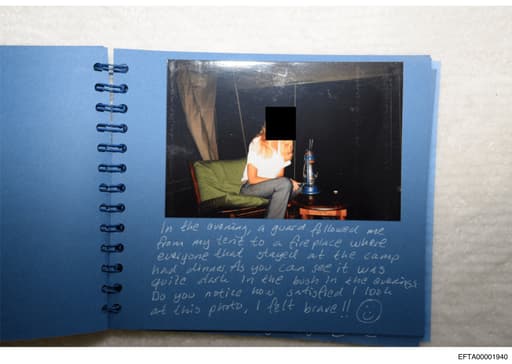 In the evening, a guard followed me
from my tent to a fireplace where
everyone that stayed at the camp
had dinner. As you can see it was
quite dark in the bush in the evenings.
Do you notice how satisfied I look
at this photo, I felt brave!!
EFTA00001940